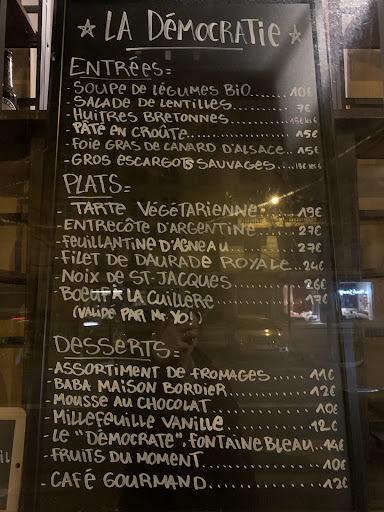 ★ LA DÉMOCRATIE ★
ENTRÉES=
- SOUPE DE LÉGUMES BIO.......10€
- SALADE DE LENTILLES.......7€
- HUITRES BRETONNES.......15€ les 6
- PÂTÉ EN CROÛTE.......15€
- FOIE GRAS DE CANARD D'ALSACE...15€
- GROS ESCARGOTS SAUVAGES....13€ les 6
PLATS=
- TARTE VÉGÉTARIENNE.......19€
- ENTRECÔTE D'ARGENTINE.......27€
- FEUILLANTINE D'AGNEAU.......27€
- FILET DE DAURADE ROYALE...24€
- NOIX DE ST-JACQUES.......26€
- BOEUF À LA CUILLÈRE.......17€
(VALIDÉ PAR Mr YO!)
DESSERTS=
- ASSORTIMENT DE FROMAGES....11€
- BABA MAISON BORDIER.......12€
- MOUSSE AU CHOCOLAT.......10€
- MILLEFEUILLE VANILLE.......12€
- LE "DÉMOCRATE", FONTAINEBLEAU..14€
- FRUITS DU MOMENT.......10€
- CAFÉ GOURMAND.......12€